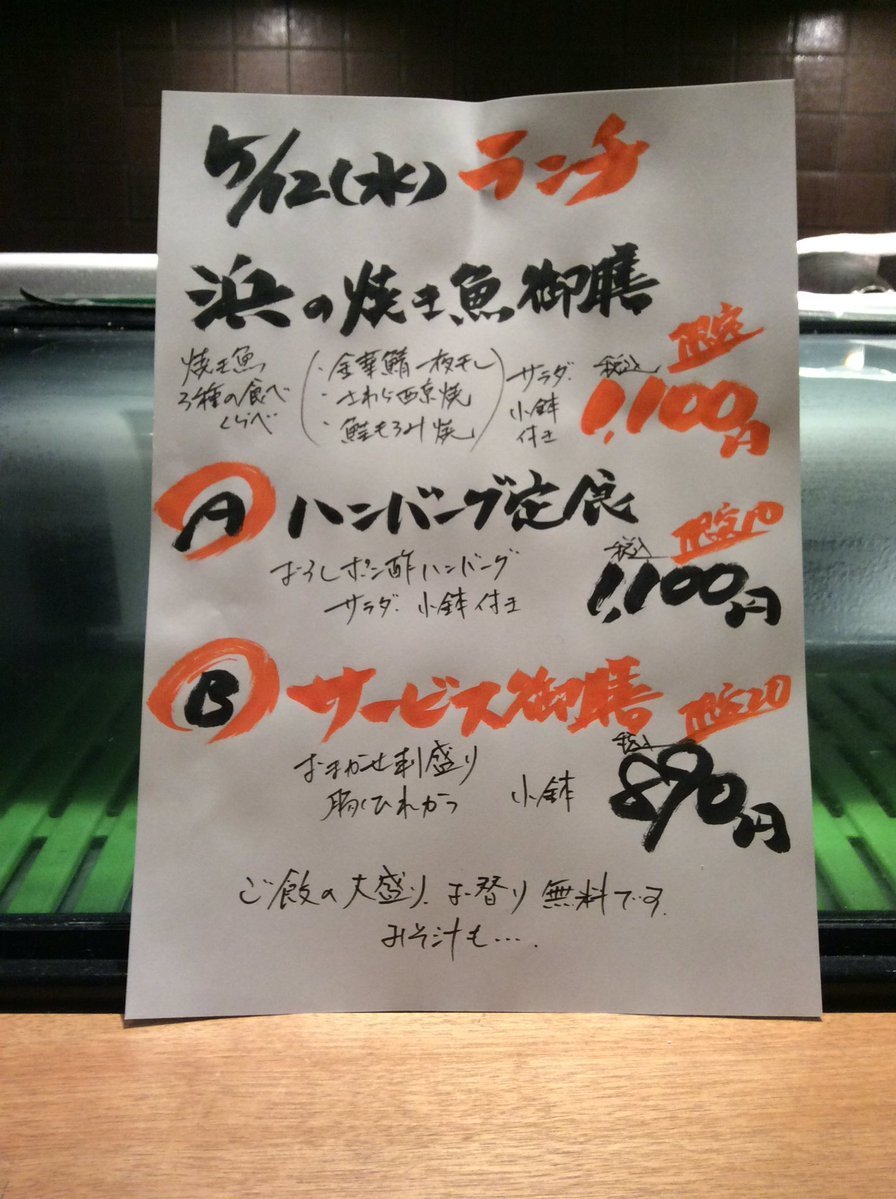 5/12(水) ランチ
浜の焼き魚御膳
限定
焼き魚
3種の食べ
くらべ
・金華鯖一夜干し
・さわら西京焼
・鮭もろみ焼
サラダ.
小鉢
付き
税込
1,100円
A ハンバーグ定食
限定10
おろしポン酢ハンバーグ
サラダ. 小鉢付き
税込
1,100円
B サービス御膳
限定20
おまかせ刺盛り
ひれかつ 小鉢
税込
890円
ご飯の大盛り、お替り無料です.
みそ汁も....